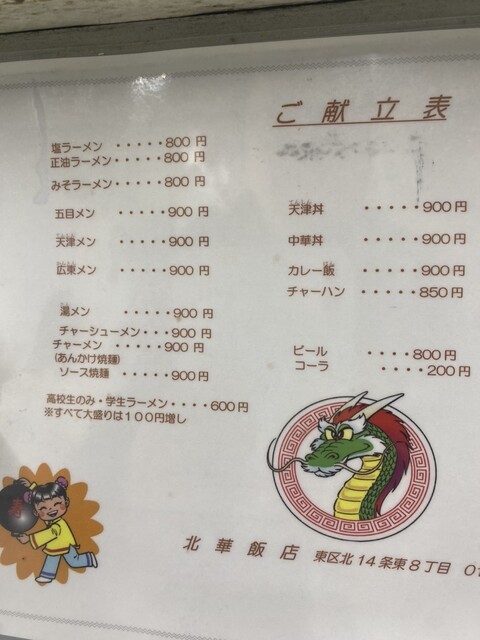 ご献立表
塩ラーメン ・・・・・800円
正油ラーメン・・・・・800円
みそラーメン・・・・・800円
五目メン ・・・・・900円
天津メン ・・・・・900円
広東メン ・・・・・900円
湯メン ・・・・・900円
チャーシューメン・・・900円
チャーメン ・・・・・900円
(あんかけ焼麺)
ソース焼麺 ・・・・・900円
高校生のみ・学生ラーメン・・・・600円
※すべて大盛りは100円増し
天津丼 ・・・・・900円
中華丼 ・・・・・900円
カレー飯 ・・・・・900円
チャーハン ・・・・・850円
ビール ・・・・800円
コーラ ・・・・・200円
北華飯店 東区北14条東8丁目 01